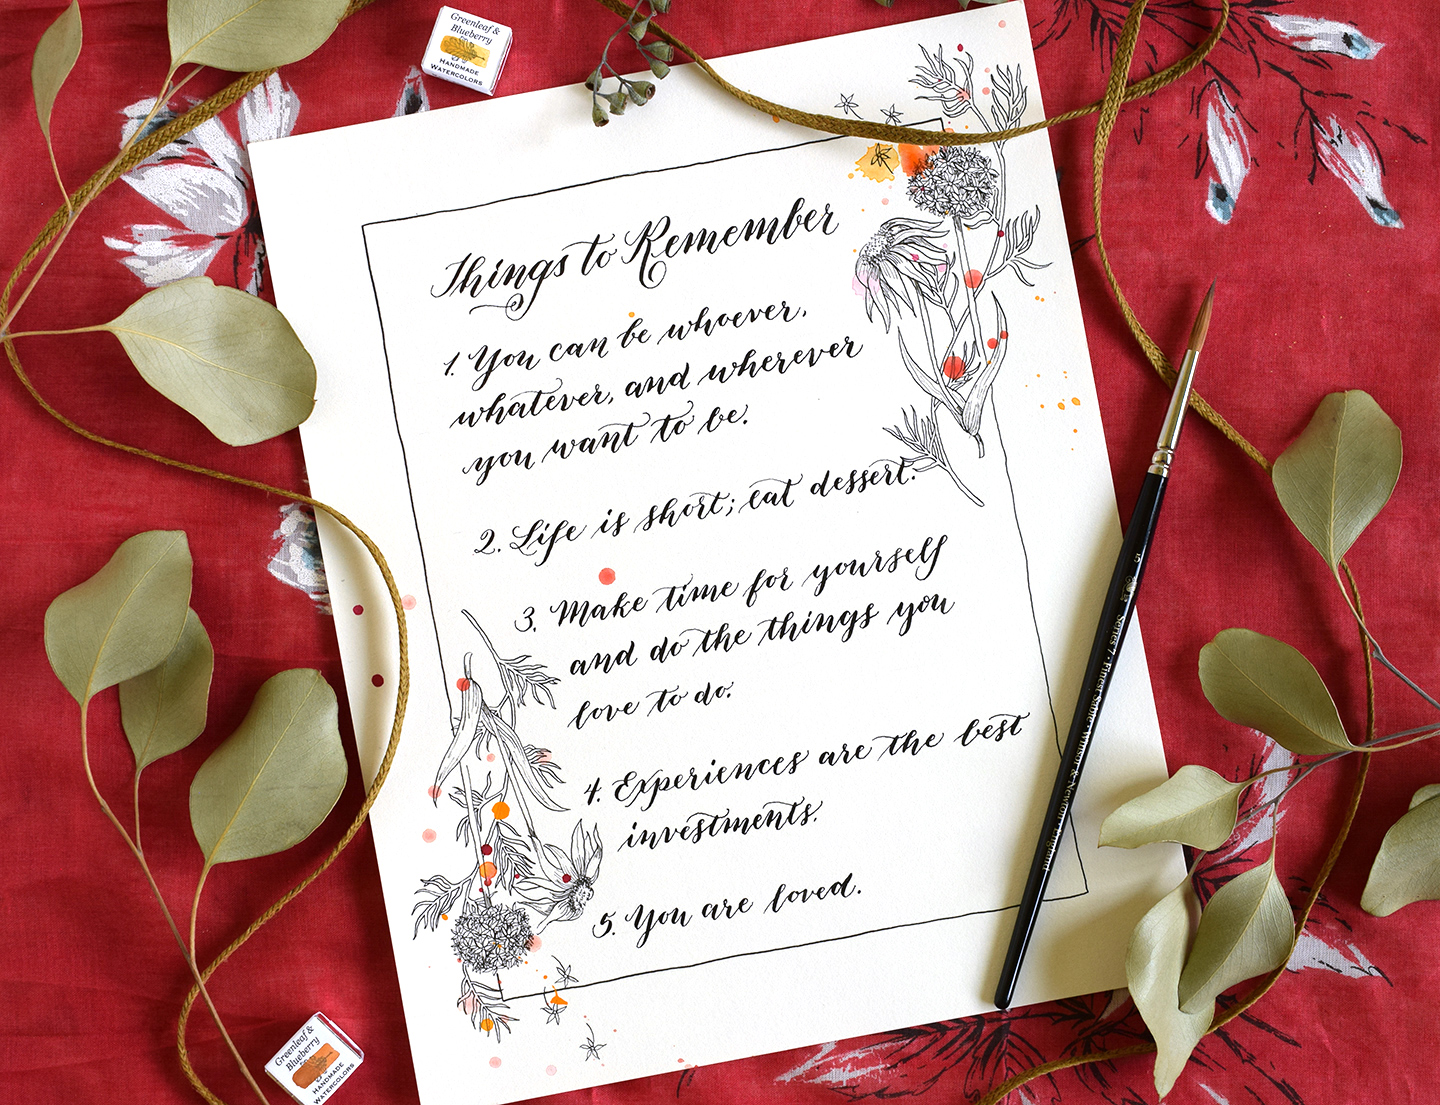 Greenleaf &
Blueberry
HANDMADE
WATERCOLORS
Things to Remember
1. You can be whoever,
whatever, and wherever
you want to be.
2. Life is short; eat dessert.
3. Make time for yourself
and do the things you
love to do.
4. Experiences are the best
investments.
5. You are loved.
5
Series 7 · Finest Sable · Winsor & Newton · England
Greenleaf &
Blueberry
HANDMADE
WATERCOLORS